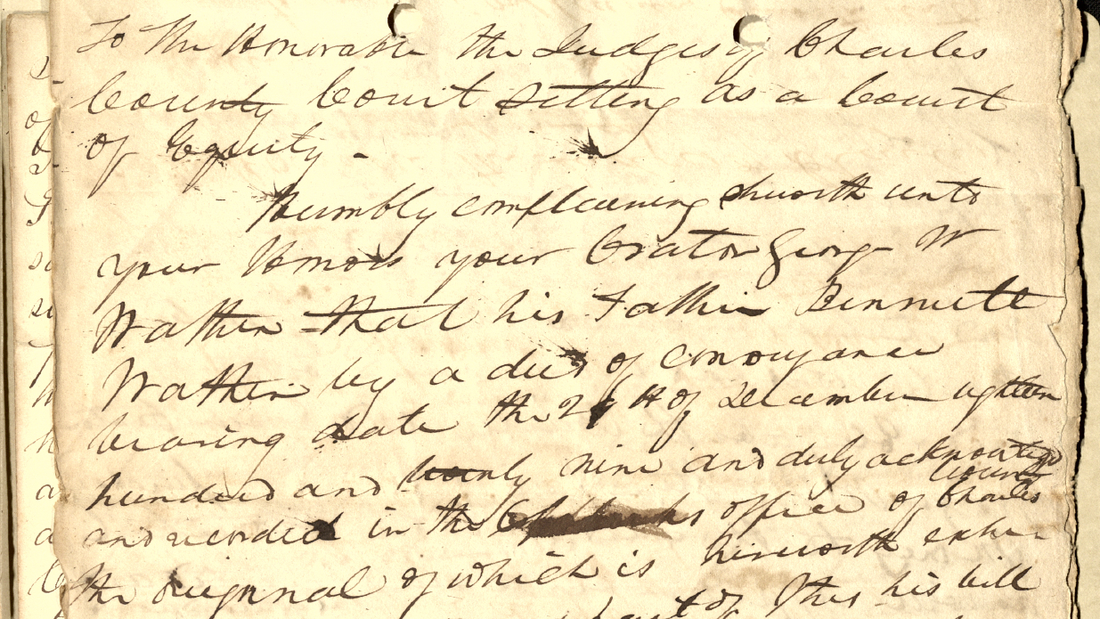 To The Honorable the Judges of Charles
County Court sitting as a Court
of Equity -
Humbly complaining sheweth unto
your Honors your Orator George W
Wathen that his Father Bennett
Wathen by a deed of conveyance
bearing date the of December eighteen
hundred and twenty nine and duly acknowledged
and recorded in the Clerks office of Charles
County
the original of which is herewith exhi-
part of this his bill